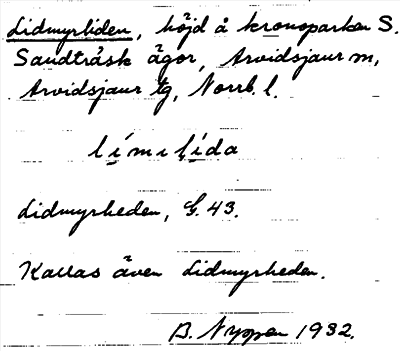 Lidmyrliden, höjd å kronoparken S.
Sandträsk ägor, Arvidsjaur m,
Arvidsjaur tg, Norrb. l.
límılída
Lidmyrheden, G. 43.
Kallas även Lidmyrheden.
B. Nyman 1932.